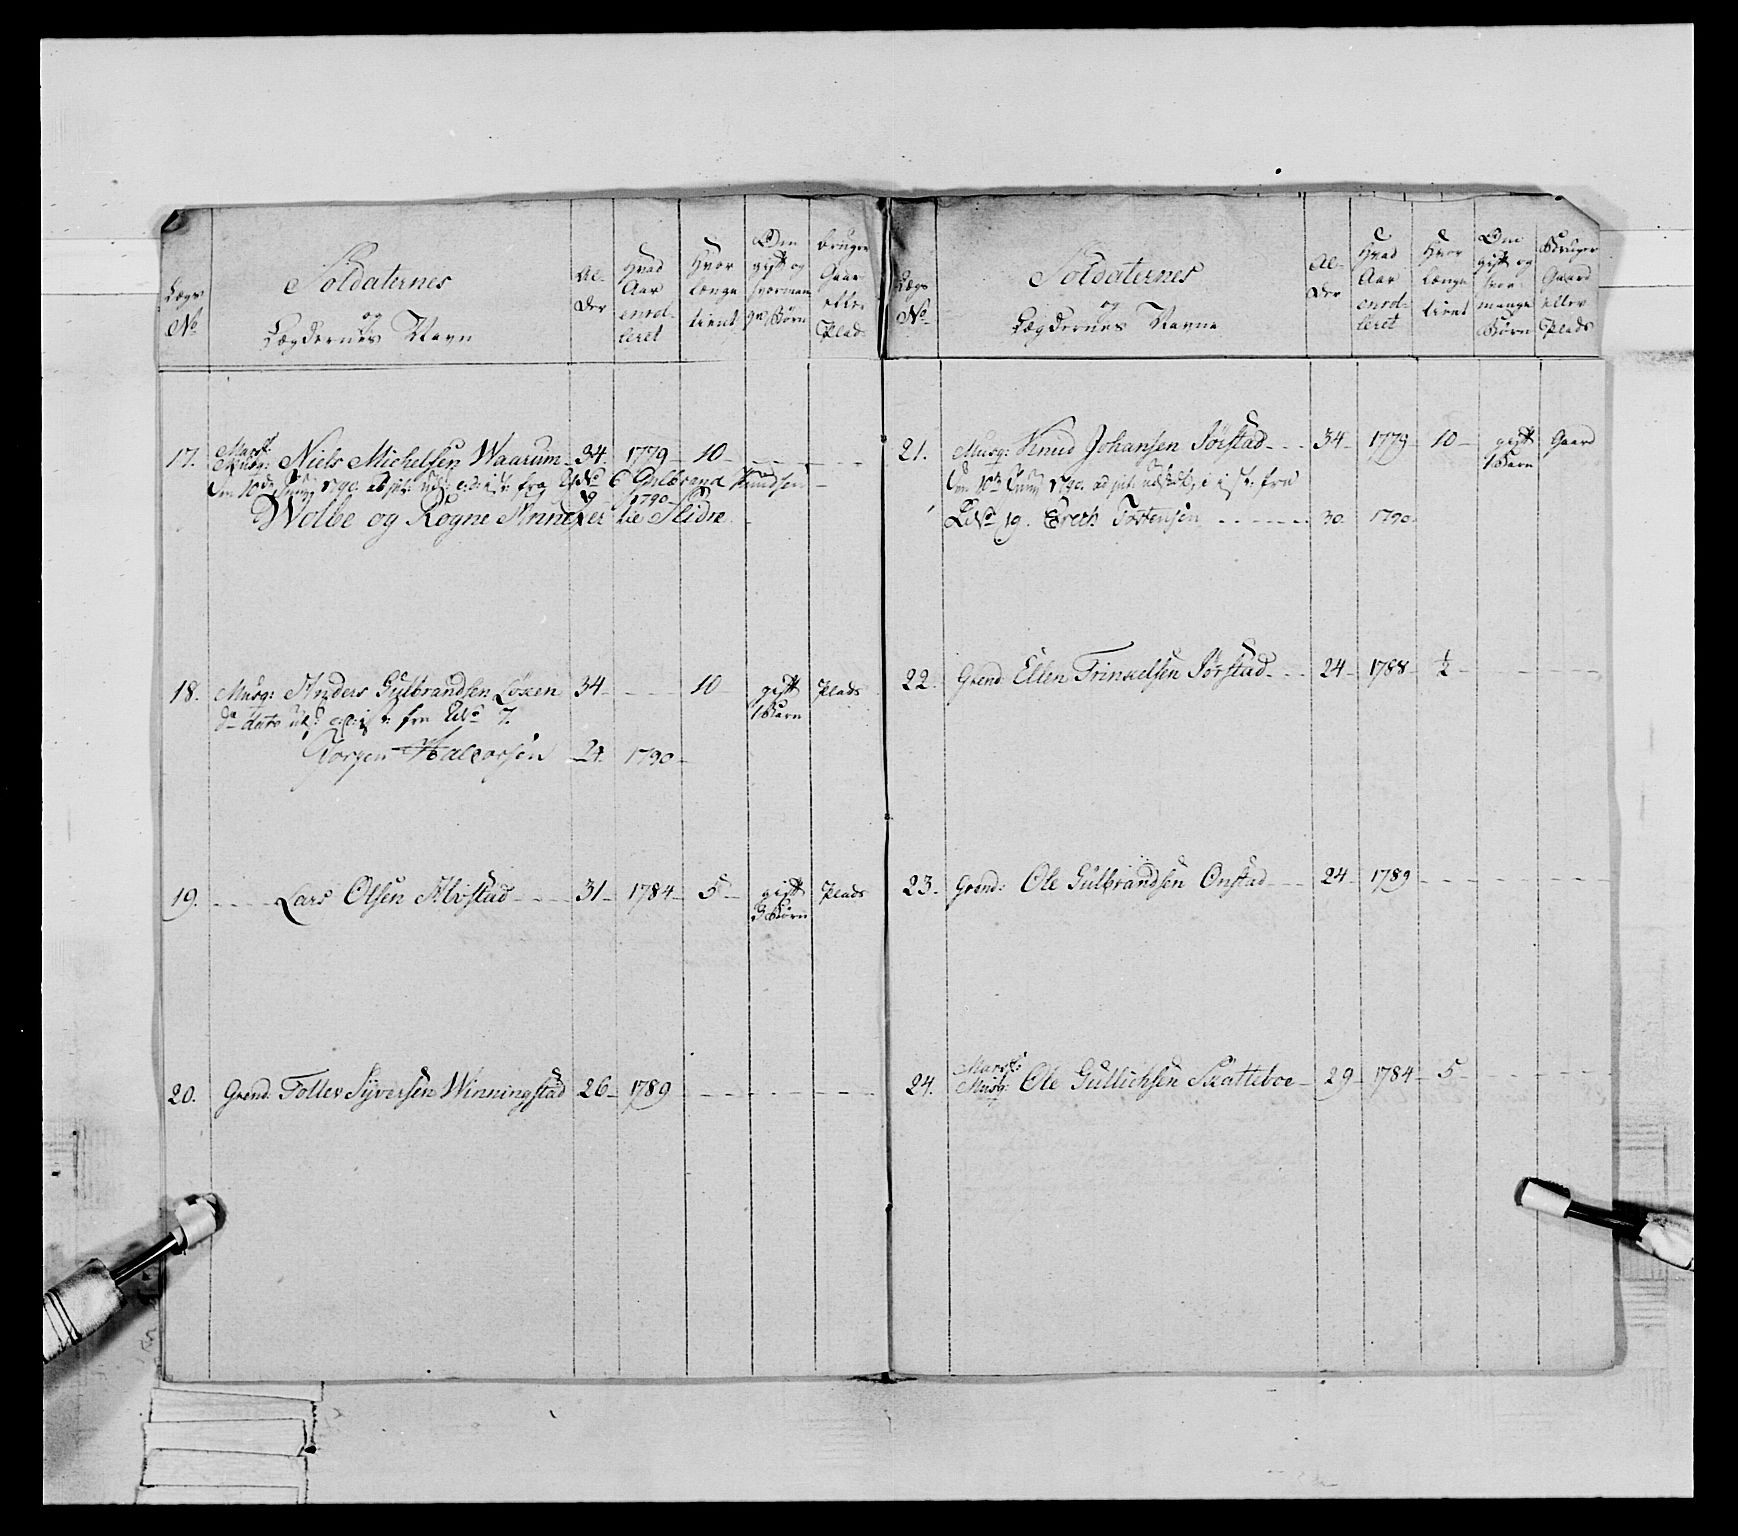 Lægs
No
Soldaternes
og
Lægdernes Navn
Al-
der
Hvad
Aar
enrol-
leret
Hvor
længe
tient
Om
gift og
hvorman
ge Børn
bruger
Gaar
eller
Plads
17. Musq: Niels Michelsen Waarum 34 1779 10
fra No 6 Knudsen
9 1790
Wolbe og Rogne Annexer til Slidre
18. Musq: Anders Gulbrandsen Loken 34 10 gift Plads
1 Barn
do dato fra No 7.
Halvorsen 24. 1790
19. Lars Olsen Alvstad 31 1784 5 gift Plads
3 Børn
20. Grend. Tollev Syversen Winningstad 26 1789
Lægs
No
Soldaternes
og
Lægdernes Navne
Al-
der
Hvad
Aar
enrol-
leret
Hvor
længe
tient
Om
gift og
hvor
mange
Børn
Bruger
Gaard
eller
Plads
21. Musq: Knud Johansen Sørstad 34 1779 10 gift Gaard
1 Barn
Den 1790. fra
No 19. Erech Tostensen 30. 1790.
22. Grend. Ellen Trinselsen Sørstad 24 1788 ½
23. Grend: Ole Gulbrandsen Onstad 24 1789
24. Musq: Ole Gullichsen Skatteboe 29 1784 5